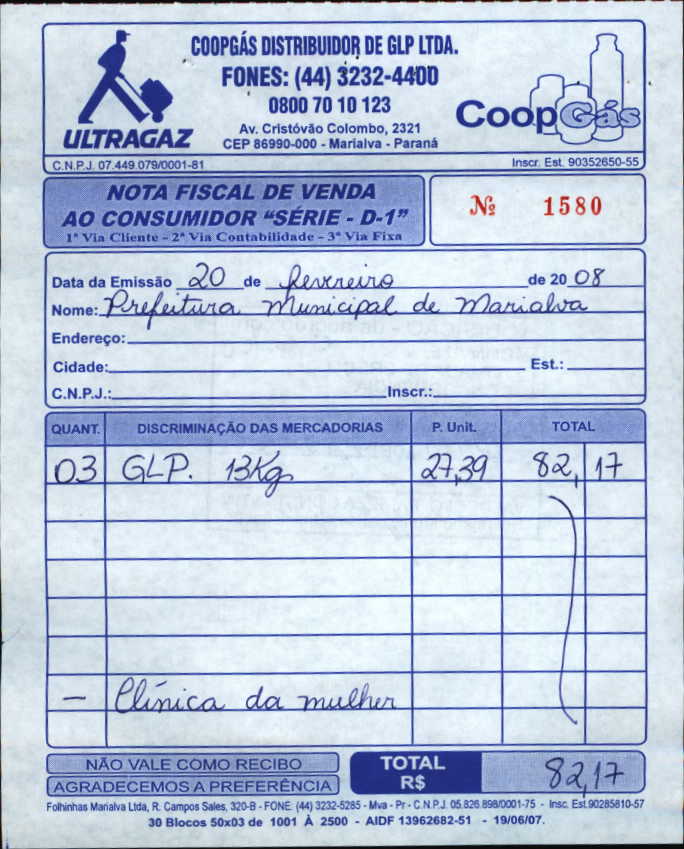 COOPGÁS DISTRIBUIDOR DE GLP LTDA.
FONES: (44) 3232-4400
0800 70 10 123
Av. Cristóvão Colombo, 2321
CEP 86990-000 - Marialva - Paraná
ULTRAGAZ
CoopGás
C.N.P.J. 07.449.079/0001-81
Inscr. Est. 90352650-55
NOTA FISCAL DE VENDA
AO CONSUMIDOR “SÉRIE - D-1”
1ª Via Cliente - 2ª Via Contabilidade - 3ª Via Fixa
Nº 1580
Data da Emissão 20 de fevereiro de 2008
Nome: Prefeitura Municipal de Marialva
Endereço:
Cidade: Est.:
C.N.P.J.: Inscr.:
QUANT. DISCRIMINAÇÃO DAS MERCADORIAS P. Unit. TOTAL
03 GLP. 13Kg 27,39 82,17
- Clínica da mulher
NÃO VALE COMO RECIBO
AGRADECEMOS A PREFERÊNCIA
TOTAL R$ 82,17
Folhinhas Marialva Ltda, R. Campos Sales, 320-B - FONE: (44) 3232-5285 - Mva - Pr - C.N.P.J. 05.826.898/0001-75 - Insc. Est.90285810-57
30 Blocos 50x03 de 1001 À 2500 - AIDF 13962682-51 - 19/06/07.